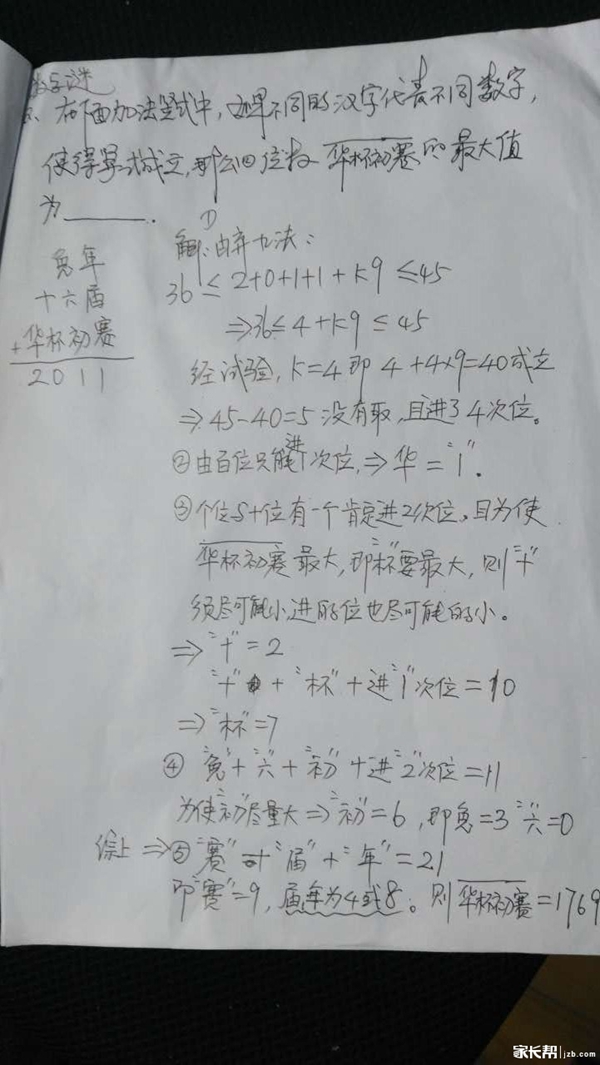 数字谜
右下面加法竖式中,如果不同的汉字代表不同数字,
使得算式成立,那么四位数 华杯初赛 的最大值
为______.
兔年
十六届
+华杯初赛
2011
解:①由弃九法:
36≤2+0+1+1+k9≤45
⇒36≤4+k9≤45
经试验,k=4即 4+4×9=40成立
⇒45-40=5没有取,且进了4次位。
②由百位只能进1次位,⇒华="1".
③个位与十位有一个肯定进2次位,且为使
华杯初赛最大,即"杯"要最大,则"十"
须尽可能小,进的位也尽可能的小。
⇒"十"=2
"十"+"杯"+进"1"次位=10
⇒"杯"=7
④"兔"+"六"+"初"+进"2"次位=11
为使"初"尽量大⇒"初"=6,即兔=3 "六"=0
综上⇒⑤"赛"+"届"+"年"=21
即"赛"=9,届年为4或8。则华杯初赛=1769
家长帮 jzb.com